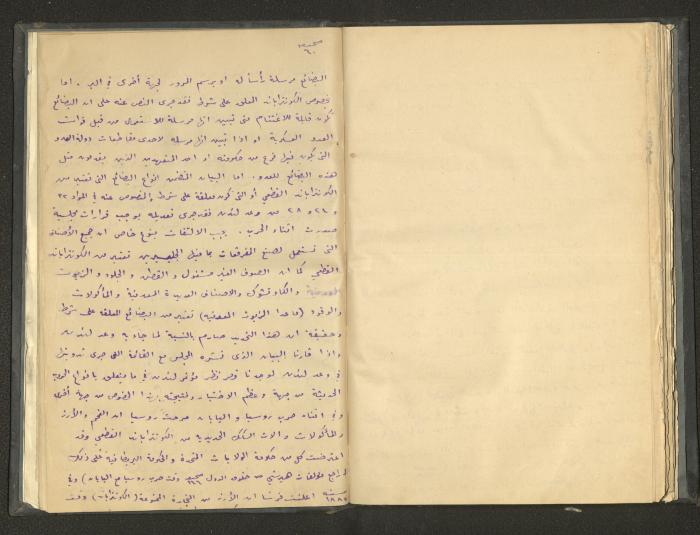 صحيفة
٦٠
البضائع مرسلة رأساً له او برسم المرور لجهة أخرى في البر. اما
بخصوص الكونترابانت المعلق على شرط فقد جرى النص عنه على ان البضائع
تكون قابلة للاغتنام متى تبين انها مرسلة للاستعمال من قبل قوات
العدو العسكرية او اذا تبين انها مرسله لاحدى مقاطعات دولة العدو
التي يكون قبل فرع من حكومته او احد المتعهدين الذين يقدمون مثل
هذه البضائع للعدو. اما البيان المتضمن انواع البضائع التي تعتبر من
الكونترابانت القطعي أو التي تكون معلقة على شرط والمنصوص عنه في المواد ٢٢
و ٢٤ و ٢٨ من وعد لندن فقد جرى تعديله بموجب قرارات مجلسية
صدرت اثناء الحرب. يجب الالتفات بنوع خاص ان جميع الأصناف
التي تستعمل لصنع المفرقعات تعتبر من الكونترابانت
القطعي كما ان الصوف الغير مشغول والقطن والجلود والزيوت
المعدنية والكاوتشوك والاصناف العديدة المعدنية والمأكولات
والوقود (ماعدا الزيوت المعدنية) تعتبر من البضائع المعلقه على شرط
وحقيقة ان هذا الترتيب صارم بالنسبة لما جاء به وعد لندن
واذا قارنا البيان الذى نشره المجلس مع القائمة التي جرى تدوينها
في وعد لندن لوجدنا قصر نظر مؤتمر لندن في ما يتعلق بانواع الحرب
الحديثة من جهة وعظم الاختبار ونتيجته بهذا الخصوص من جهة أخرى
وفي اثناء حرب روسيا واليابان صرحت روسيا ان الفحم والأرز
والمأكولات وآلات السكك الحديدية من الكونترابانت القطعي وقد
اعترضت كل من حكومة الولايات المتحدة والحكومة البريطانية على ذلك
(راجع مؤلفات هرشي من حقوق الدول صحيفه ١٦٦ وقت حرب روسيا مع اليابان) وفي
سنة ١٨٨٥ اعلنت فرنسا ان الأرز من التجارة الممنوعة (الكونترابانت) وقت